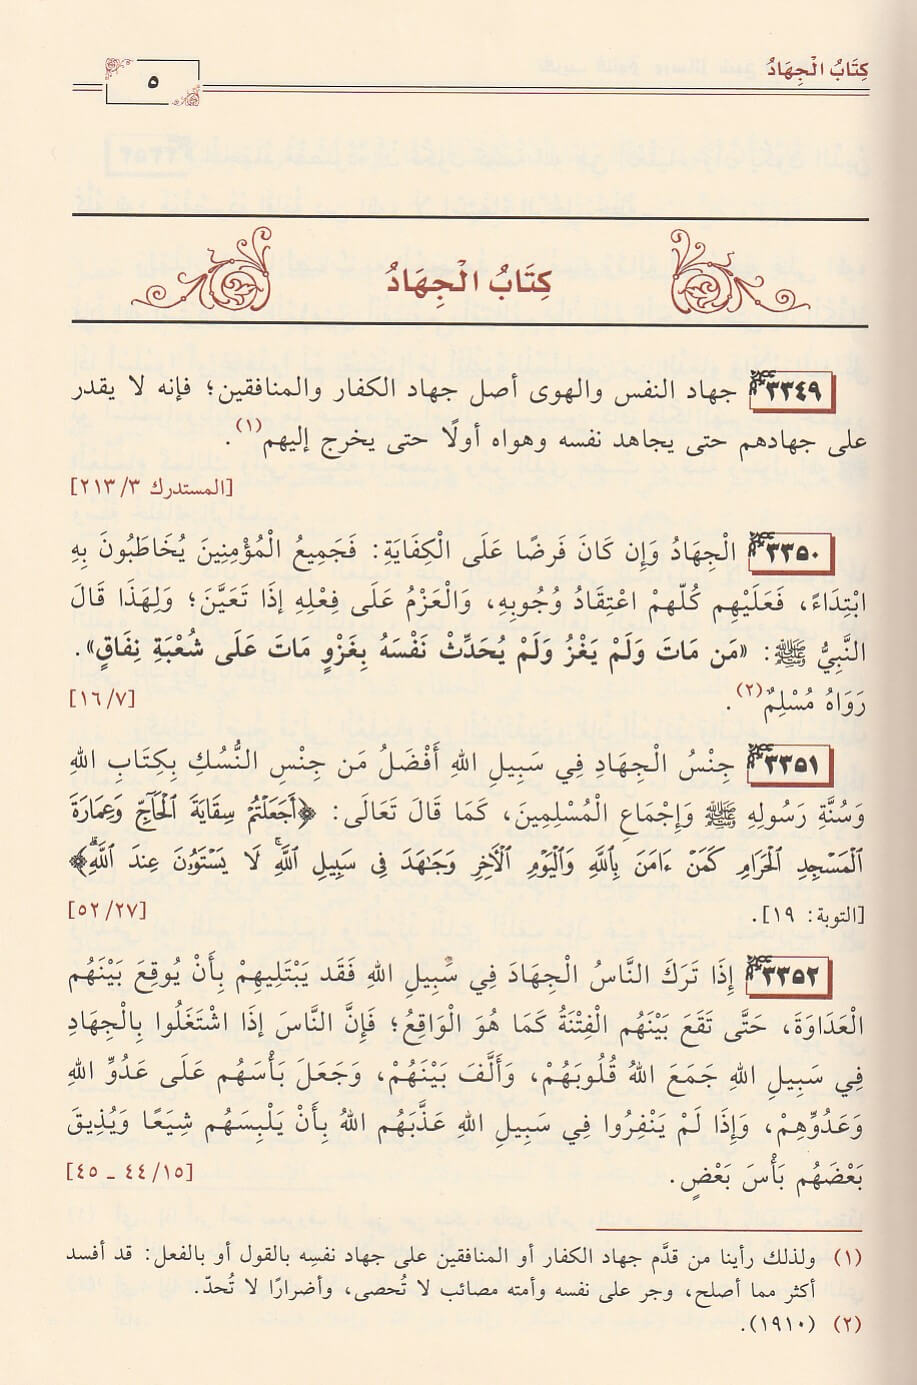 كِتَابُ الْجِهَادُ
٥
كِتَابُ الْجِهَادُ
٣٣٤٩ جهاد النفس والهوى أصل جهاد الكفار والمنافقين؛ فإنه لا يقدر
على جهادهم حتى يجاهد نفسه وهواه أولًا حتى يخرج إليهم(١).
[المستدرك ٣/ ٢١٣]
٣٣٥٠ الْجِهَادُ وَإِن كَانَ فَرضًا عَلَى الْكِفَايَةِ: فَجَمِيعُ الْمُؤْمِنِينَ يُخَاطَبُونَ بِهِ
ابْتِدَاءً، فَعَلَيْهِم كُلّهمْ اعْتِقَادُ وُجُوبِهِ، وَالْعَزْمُ عَلَى فِعْلِهِ إذَا تَعَيَّنَ؛ وَلِهَذَا قَالَ
النَّبِيُّ ﷺ: «مَن مَاتَ وَلَمْ يَغْزُ وَلَمْ يُحَدِّثْ نَفْسَهُ بِغَزْوٍ مَاتَ عَلَى شُعْبَةِ نِفَاقٍ».
رَوَاهُ مُسْلِمٌ(٢). [٧/ ١٦]
٣٣٥١ جِنْسُ الْجِهَادِ فِي سَبِيلِ اللهِ أَفْضَلُ مَن جِنْسِ النُّسُكِ بِكِتَابِ اللهِ
وَسُنَّةِ رَسُولِهِ ﷺ وَإِجْمَاعِ الْمُسْلِمِينَ، كَمَا قَالَ تَعَالَى: ﴿أَجَعَلْتُمْ سِقَايَةَ الْحَآجِّ وَعِمَارَةَ
الْمَسْجِدِ الْحَرَامِ كَمَنْ ءَامَنَ بِاللَّهِ وَالْيَوْمِ الْآخِرِ وَجَٰهَدَ فِي سَبِيلِ اللَّهِ ۚ لَا يَسْتَوُۥنَ عِندَ اللَّهِ ۗ﴾
[التوبة: ١٩]. [٢٧/ ٥٢]
٣٣٥٢ إِذَا تَرَكَ النَّاسُ الْجِهَادَ فِي سَبِيلِ اللهِ فَقَد يَبْتَلِيهِمْ بِأَنْ يُوقِعَ بَيْنَهُم
الْعَدَاوَةَ، حَتَّى تَقَعَ بَيْنَهُم الْفِتْنَةُ كَمَا هُوَ الْوَاقِعُ؛ فَإِنَّ النَّاسَ إذَا اشْتَغَلُوا بِالْجِهَادِ
فِي سَبِيلِ اللهِ جَمَعَ اللهُ قُلُوبَهُمْ، وَأَلَّفَ بَيْنَهُمْ، وَجَعَلَ بَأْسَهُم عَلَى عَدُوِّ اللهِ
وَعَدُوِّهِمْ، وَإِذَا لَمْ يَنْفِرُوا فِي سَبِيلِ اللهِ عَذَّبَهُم اللهُ بِأَنْ يَلْبِسَهُم شِيَعًا وَيُذِيقَ
بَعْضَهُم بَأْسَ بَعْضٍ. [١٥/ ٤٤ - ٤٥]
(١) ولذلك رأينا من قدَّم جهاد الكفار أو المنافقين على جهاد نفسِه بالقول أو بالفعل: قد أفسد
أكثر مما أصلح، وجر على نفسه وأمته مصائب لا تُحصى، وأضرارًا لا تُحدّ.
(٢) (١٩١٠).